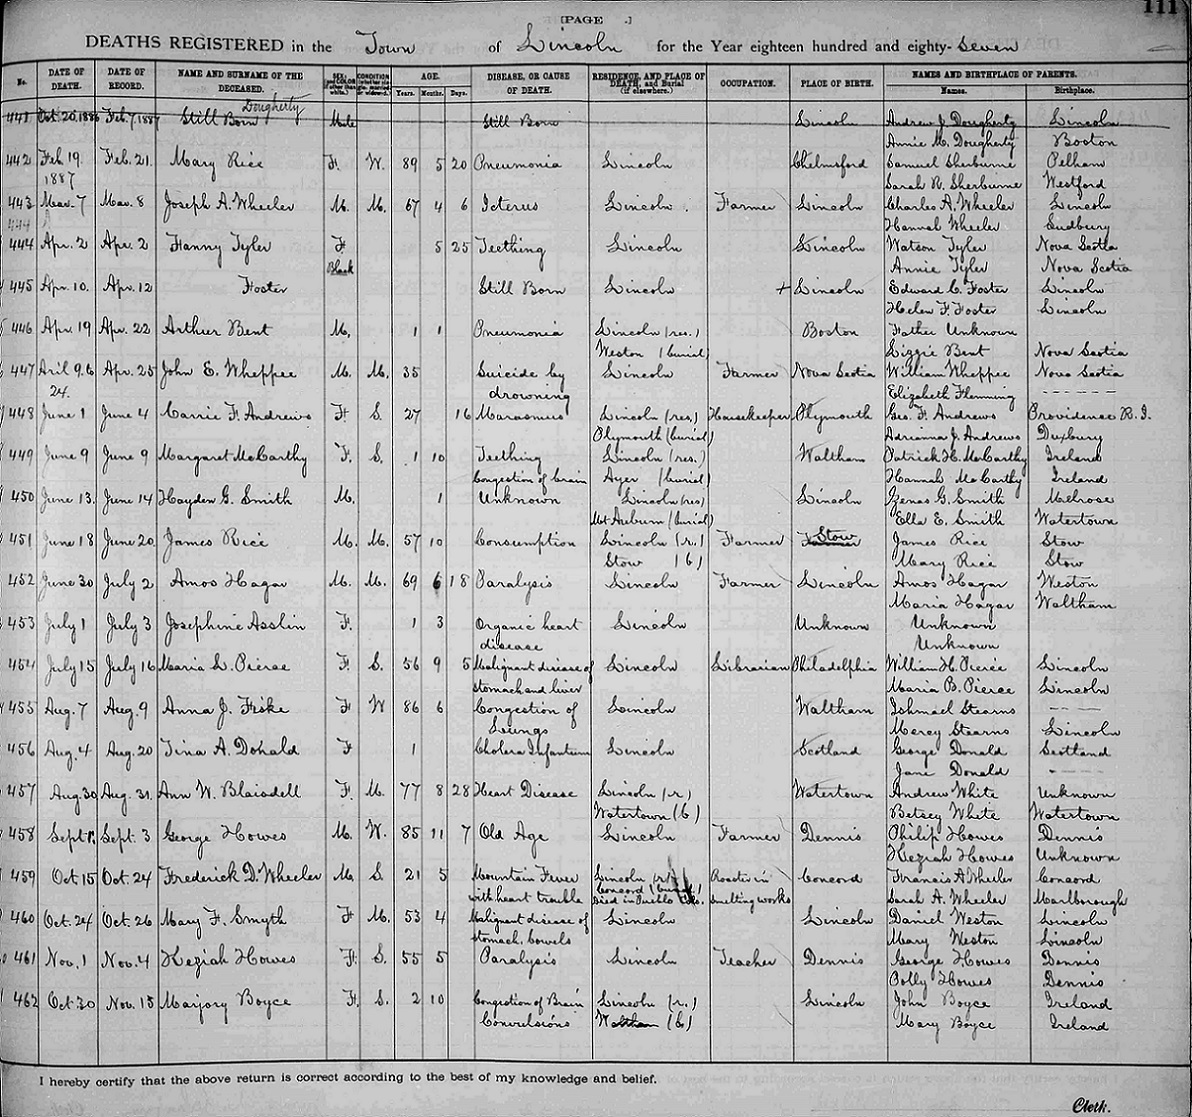 111
[PAGE .]
DEATHS REGISTERED in the Town of Lincoln for the Year eighteen hundred and eighty-seven
No. DATE OF DEATH. DATE OF RECORD. NAME AND SURNAME OF THE DECEASED. SEX, and COLOR (if other than white). CONDITION (whether single, married, or widowed). AGE. Years. Months. Days. DISEASE, OR CAUSE OF DEATH. RESIDENCE, AND PLACE OF DEATH, and Burial (if elsewhere.) OCCUPATION. PLACE OF BIRTH. NAMES AND BIRTHPLACE OF PARENTS. Names. Birthplace.
Dougherty
441 Oct. 20, 1886 Feb. 7, 1887 Still Born Male Still Born Lincoln Andrew J. Dougherty Lincoln
Annie M. Dougherty Boston
442 Feb. 19. Feb. 21. Mary Rice F. W. 89 5 20 Pneumonia Lincoln Chelmsford Samuel Sherburne Pelham
1887 Sarah R. Sherburne Westford
443 Mar. 7 Mar. 8 Joseph A. Wheeler M. M. 67 4 6 Icterus Lincoln. Farmer Lincoln Charles A. Wheeler Lincoln
444 Hannah Wheeler Sudbury
444 Apr. 2 Apr. 2 Fanny Tyler F 5 25 Teething Lincoln Lincoln Watson Tyler Nova Scotia
Black Annie Tyler Nova Scotia
445 Apr. 10. Apr. 12 Foster Still Born Lincoln + Lincoln Edward C. Foster Lincoln
Helen F. Foster Lincoln
446 Apr. 19 Apr. 22 Arthur Bent M. 1 1 Pneumonia Lincoln (res.) Boston Father Unknown
Weston (burial) Lizzie Bent Nova Scotia
447 Apr. 25 John E. Wheppee M. M. 35 Suicide by Lincoln Farmer Nova Scotia William Wheppee Nova Scotia
24. drowning Elizabeth Flemming - - - - -
448 June 1 June 4 Carrie F. Andrews F. S. 27 16 Marasmus Lincoln (res) Housekeeper Plymouth Geo. F. Andrews Providence R. I.
Plymouth (burial) Adrianna J. Andrews Duxbury
449 June 9 June 9 Margaret McCarthy F. S. 1 10 Teething Lincoln (res.) Waltham Patrick H. McCarthy Ireland
Congestion of brain Ayer (burial) Hannah McCarthy Ireland
450 June 13. June 14 Hayden G. Smith M. 1 Unknown Lincoln (res) Lincoln Zenas G. Smith Melrose
Mt Auburn (burial) Ella E. Smith Watertown
451 June 18 June 20 James Rice M. M. 57 10 Consumption Lincoln (r.) Farmer Stow James Rice Stow
Stow (b) Mary Rice Stow
452 June 30 July 2 Amos Hagar M. M. 69 6 18 Paralysis Lincoln Farmer Lincoln Amos Hagar Weston
Maria Hagar Waltham
453 July 1 July 3 Josephine Asslin F. 1 3 Organic heart Lincoln Unknown Unknown
disease Unknown
454 July 15 July 16 Maria L. Pierce F. S. 56 9 5 Malignant disease of Lincoln Librarian Philadelphia William H. Pierce Lincoln
stomach and liver Maria B. Pierce Lincoln
455 Aug. 7 Aug. 9 Anna J. Fiske F W 86 6 Congestion of Lincoln Waltham Ishmael Stearns - - -
Lungs Mercy Stearns Lincoln
456 Aug. 4 Aug. 20 Tina A. Donald F 1 Cholera Infantum Lincoln Scotland George Donald Scotland
Jane Donald - - - -
457 Aug. 30 Aug. 31. Ann W. Blaisdell F. M. 77 8 28 Heart Disease Lincoln (r.) Watertown Andrew White Unknown
Watertown (b) Betsey White Watertown
458 Sept 1. Sept. 3 George Howes M. W. 85 11 7 Old Age Lincoln Farmer Dennis Philip Howes Dennis
Keziah Howes Unknown
459 Oct 15 Oct. 24 Frederick D. Wheeler M. S. 21 5 Mountain Fever Lincoln (r) Roaster in Concord Francis A Wheeler Concord
with heart trouble Concord (burial) Died in Pueblo smelting works Sarah A. Wheeler Marlborough
460 Oct. 24 Oct. 26 Mary F. Smyth F M. 53 4 Malignant disease of Lincoln Lincoln Daniel Weston Lincoln
stomach, bowels Mary Weston Lincoln
461 Nov. 1 Nov. 4 Keziah Howes F. S. 55 5 Paralysis Lincoln Teacher Dennis George Howes Dennis
Polly Howes Dennis
462 Oct 30 Nov. 15 Marjory Boyce F. S. 2 10 Congestion of Brain Lincoln (r.) Lincoln John Boyce Ireland
Convulsions Waltham (b) Mary Boyce Ireland
I hereby certify that the above return is correct according to the best of my knowledge and belief.
Clerk.